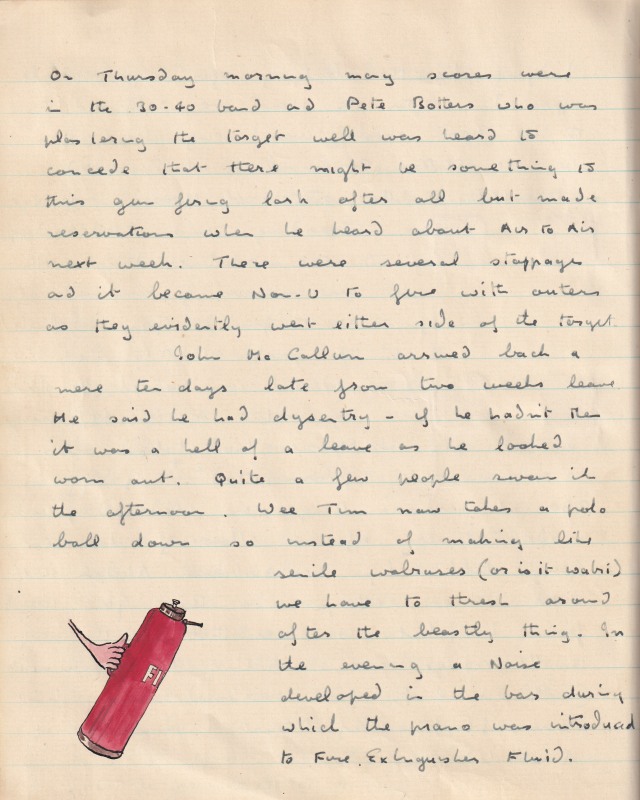 On Thursday morning many scores were
in the 30-40 band ad Pete Botters who was
plastering the target well was heard to
concede that there might be something to
this gun firing lark after all but made
reservations when he heard about Air to Air
next week. There were several stoppages
ad it became Non-U to fire with outers
as they evidently went either side of the target.
John Mc Callum arrived back a
mere ten days late from two weeks leave.
He said he had dysentry - if he hadn't then
it was a hell of a leave as he looked
worn out. Quite a few people swam in
the afternoon. Wee Tim now takes a polo
ball down so instead of making like
senile walruses (or is it walri)
we have to thresh around
after the beastly thing. In
the evening a Noise
developed in the bar during
which the piano was introduced
to Fire Extinguisher Fluid.
FI